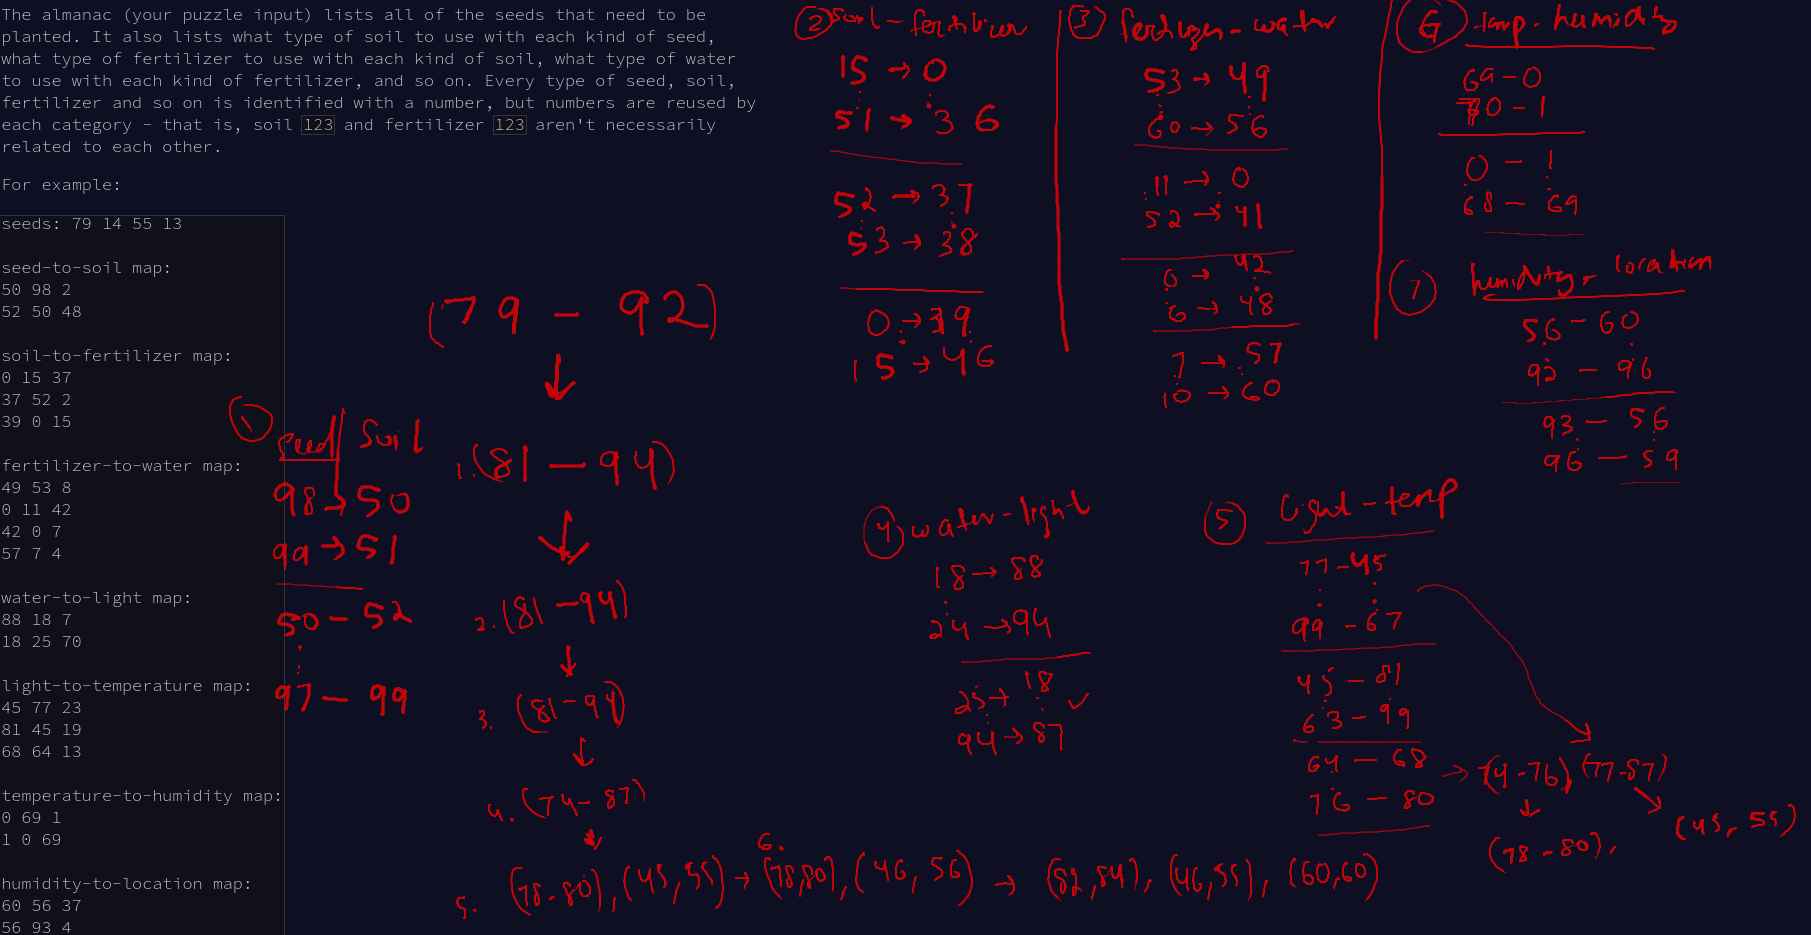 The almanac (your puzzle input) lists all of the seeds that need to be
planted. It also lists what type of soil to use with each kind of seed,
what type of fertilizer to use with each kind of soil, what type of water
to use with each kind of fertilizer, and so on. Every type of seed, soil,
fertilizer and so on is identified with a number, but numbers are reused by
each category - that is, soil 123 and fertilizer 123 aren't necessarily
related to each other.
For example:
seeds: 79 14 55 13
seed-to-soil map:
50 98 2
52 50 48
soil-to-fertilizer map:
0 15 37
37 52 2
39 0 15
fertilizer-to-water map:
49 53 8
0 11 42
42 0 7
57 7 4
water-to-light map:
88 18 7
18 25 70
light-to-temperature map:
45 77 23
81 45 19
68 64 13
temperature-to-humidity map:
0 69 1
1 0 69
humidity-to-location map:
60 56 37
56 93 4
1 seed | soil
98 → 50
99 → 51
50 - 52
97 - 99
(79 - 92)
↓
1. (81 - 94)
↓
2. (81 - 94)
↓
3. (81 - 94)
↓
4. (74 - 87)
↓
5. (78-80), (45,55) → 6. (78,80), (46, 56) → (82,84), (46,55), (60,60)
2 soil - fertilizer
15 → 0
51 → 36
52 → 37
53 → 38
0 → 39
15 → 46
3 fertilizer - water
53 → 49
60 → 56
11 → 0
52 → 41
0 → 42
6 → 48
7 → 57
10 → 60
4 water - light
18 → 88
24 → 94
25 → 18
94 → 87
5 light - temp
77 - 45
99 - 67
45 - 81
63 - 99
64 - 68 → (74-76), (77-87)
76 - 80
(78-80), (45, 55)
6 temp - humidity
69 - 0
70 - 1
0 - 1
68 - 69
7 humidity - location
56 - 60
92 - 96
93 - 56
96 - 59